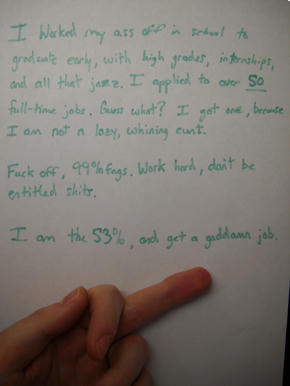 I Worked my ass off in school to
graduate early, with high grades, internships,
and all that jazz. I applied to over 50
full-time jobs. Guess what? I got one, because
I am not a lazy, whining cunt.
Fuck off, 99% fags. Work hard, don't be
entitled shits.
I am the 53%, and get a goddamn job.